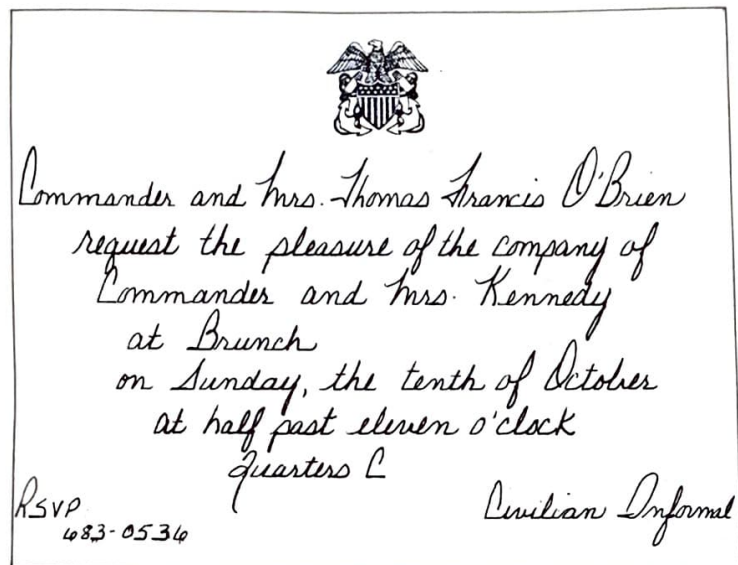 Commander and Mrs. Thomas Francis O'Brien
request the pleasure of the company of
Commander and Mrs. Kennedy
at Brunch
on Sunday, the tenth of October
at half past eleven o'clock
Quarters C
RSVP
683-0536
Civilian Informal